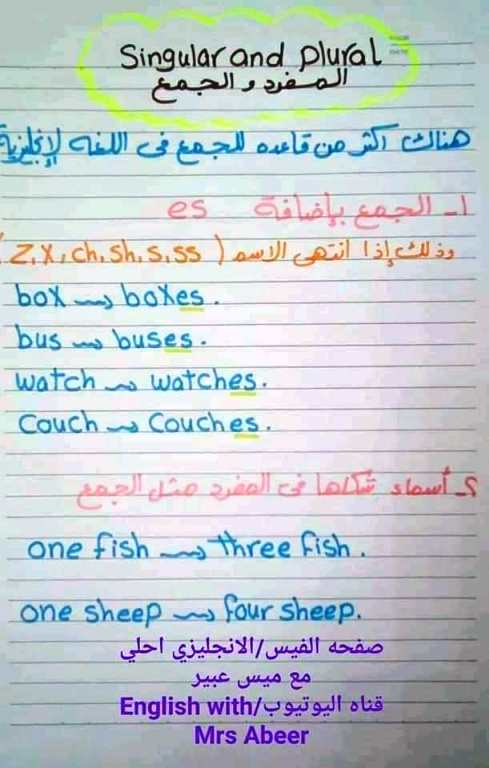 Singular and plural
المفرد و الجمع
هناك اكثر من قاعده للجمع فى اللغه الإنجليزية
١- الجمع بإضافة es
وذلك إذا انتهى الاسم ( Z, X, ch, sh, s, ss )
box → boxes.
bus → buses.
watch → watches.
Couch → Couches.
٢- أسماء شكلها فى المفرد مثل الجمع
one fish → three fish.
one sheep → four sheep.
صفحه الفيس/الانجليزي احلي
مع ميس عبير
قناه اليوتيوب/English with
Mrs Abeer